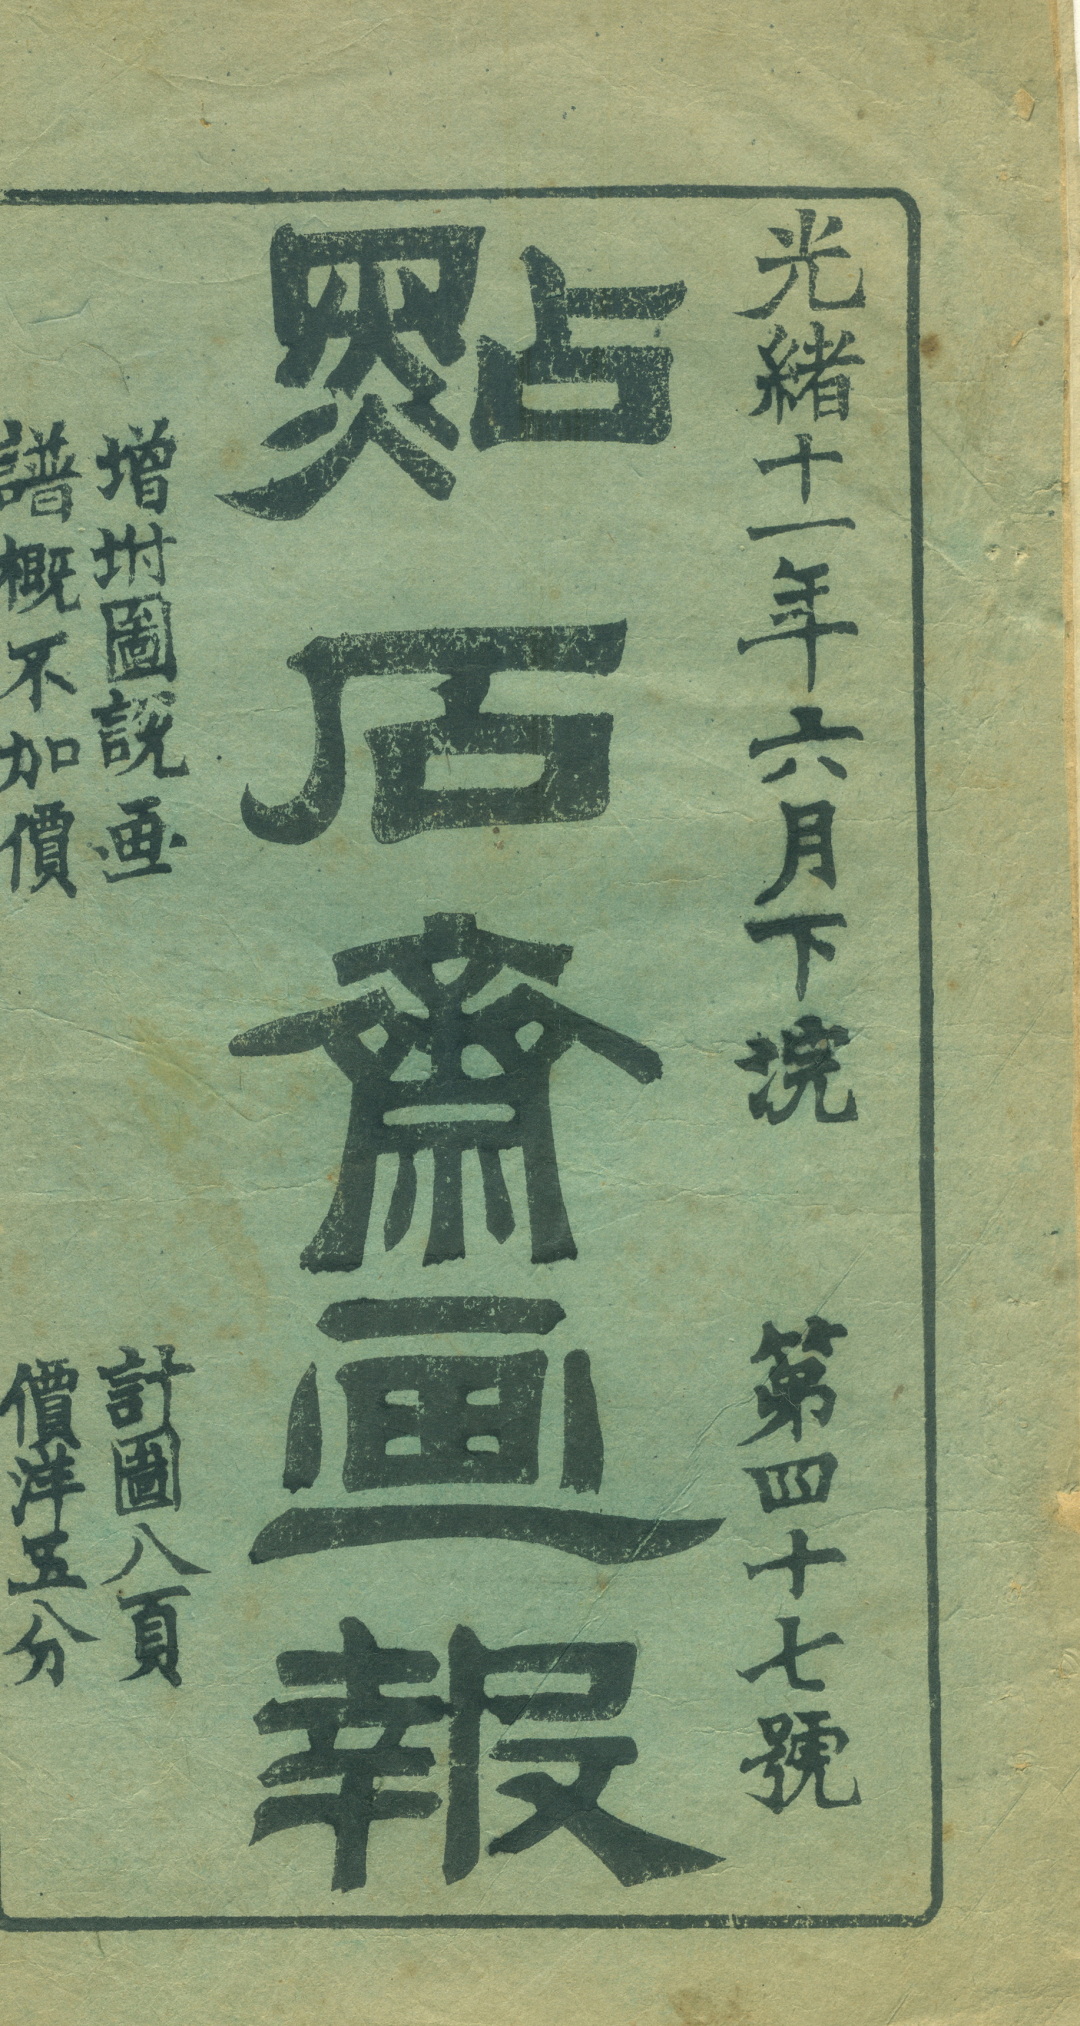 光緒十一年六月下浣 第四十七號
點石齋画報
增坿圖說画 計圖八頁
譜概不加價 價洋五分